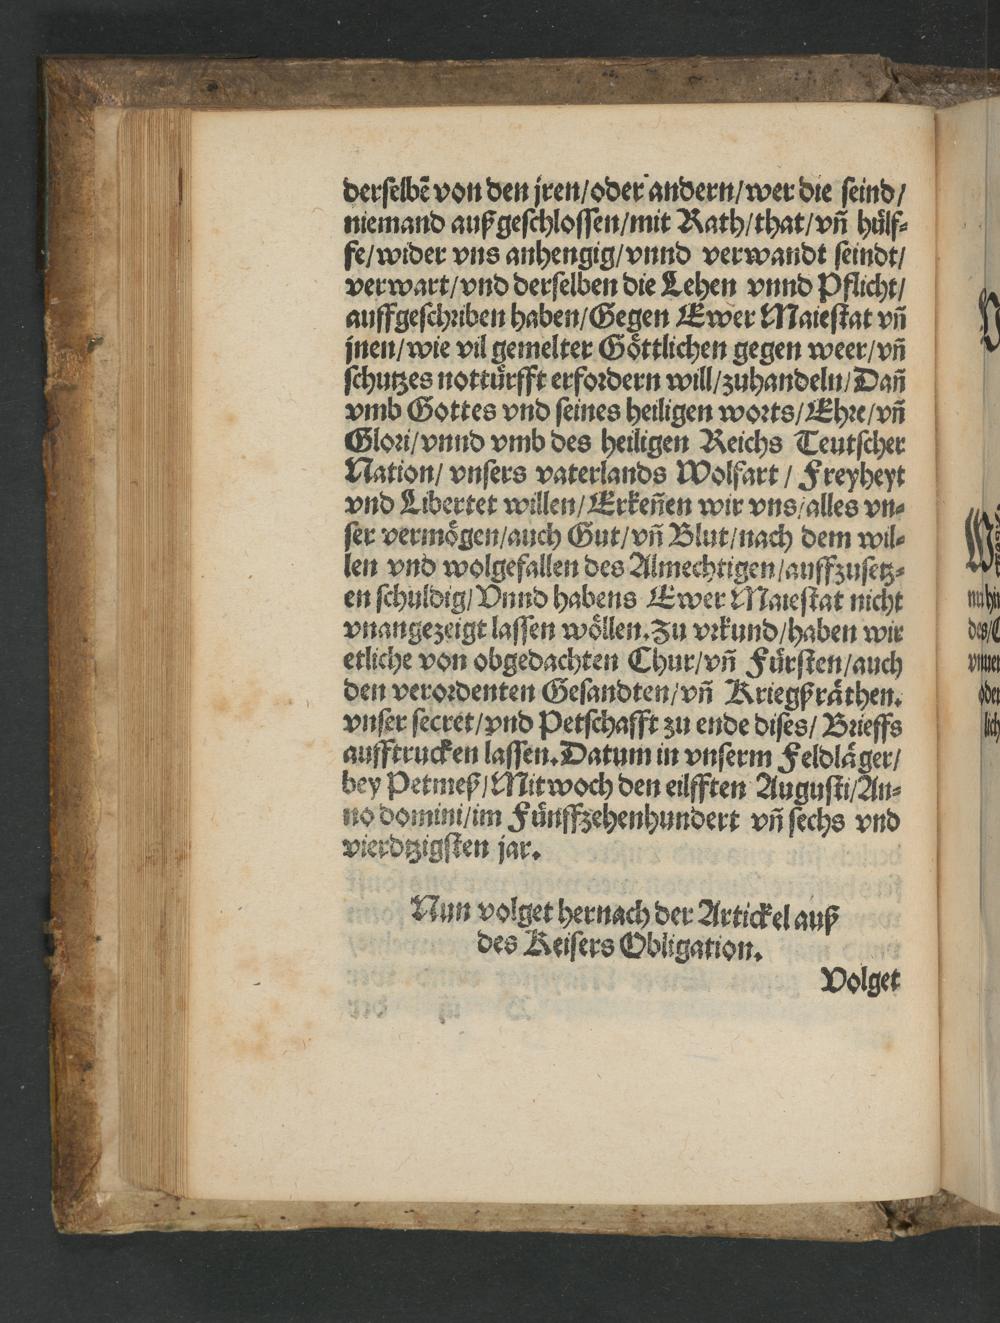 derselbẽ von den jren/oder andern/wer die seind/
niemand außgeschlossen/mit Rath/that/vñ hülf-
fe/wider vns anhengig/vnnd verwandt seindt/
verwart/vnd derselben die Lehen vnnd Pflicht/
auffgeschriben haben/Gegen Ewer Maiestat vñ
jnen/wie vil gemelter Göttlichen gegen weer/vñ
schutzes nottürfft erfordern will/zuhandeln/Dañ
vmb Gottes vnd seines heiligen worts/Ehre/vñ
Glori/vnnd vmb des heiligen Reichs Teutscher
Nation/ vnsers vaterlands Wolfart / Freyheyt
vnd Libertet willen/Erkeñen wir vns/alles vn-
ser vermögen/auch Gut/vñ Blut/nach dem wil-
len vnd wolgefallen des Almechtigen/auffzusetz-
en schuldig/Vnnd habens Ewer Maiestat nicht
vnangezeigt lassen wöllen.Zu vrkund/haben wir
etliche von obgedachten Chur/vñ Fürsten/auch
den verordenten Gesandten/vñ Kriegßräthen.
vnser secret/vnd Petschafft zu ende dises/ Brieffs
aufftrucken lassen.Datum in vnserm Feldläger/
bey Petmeß/Mitwoch den eilfften Augusti/An-
no domini/im Fünffzehenhundert vñ sechs vnd
vierdtzigsten jar.
Nun volget hernach der Artickel auß
des Keisers Obligation.
Volget